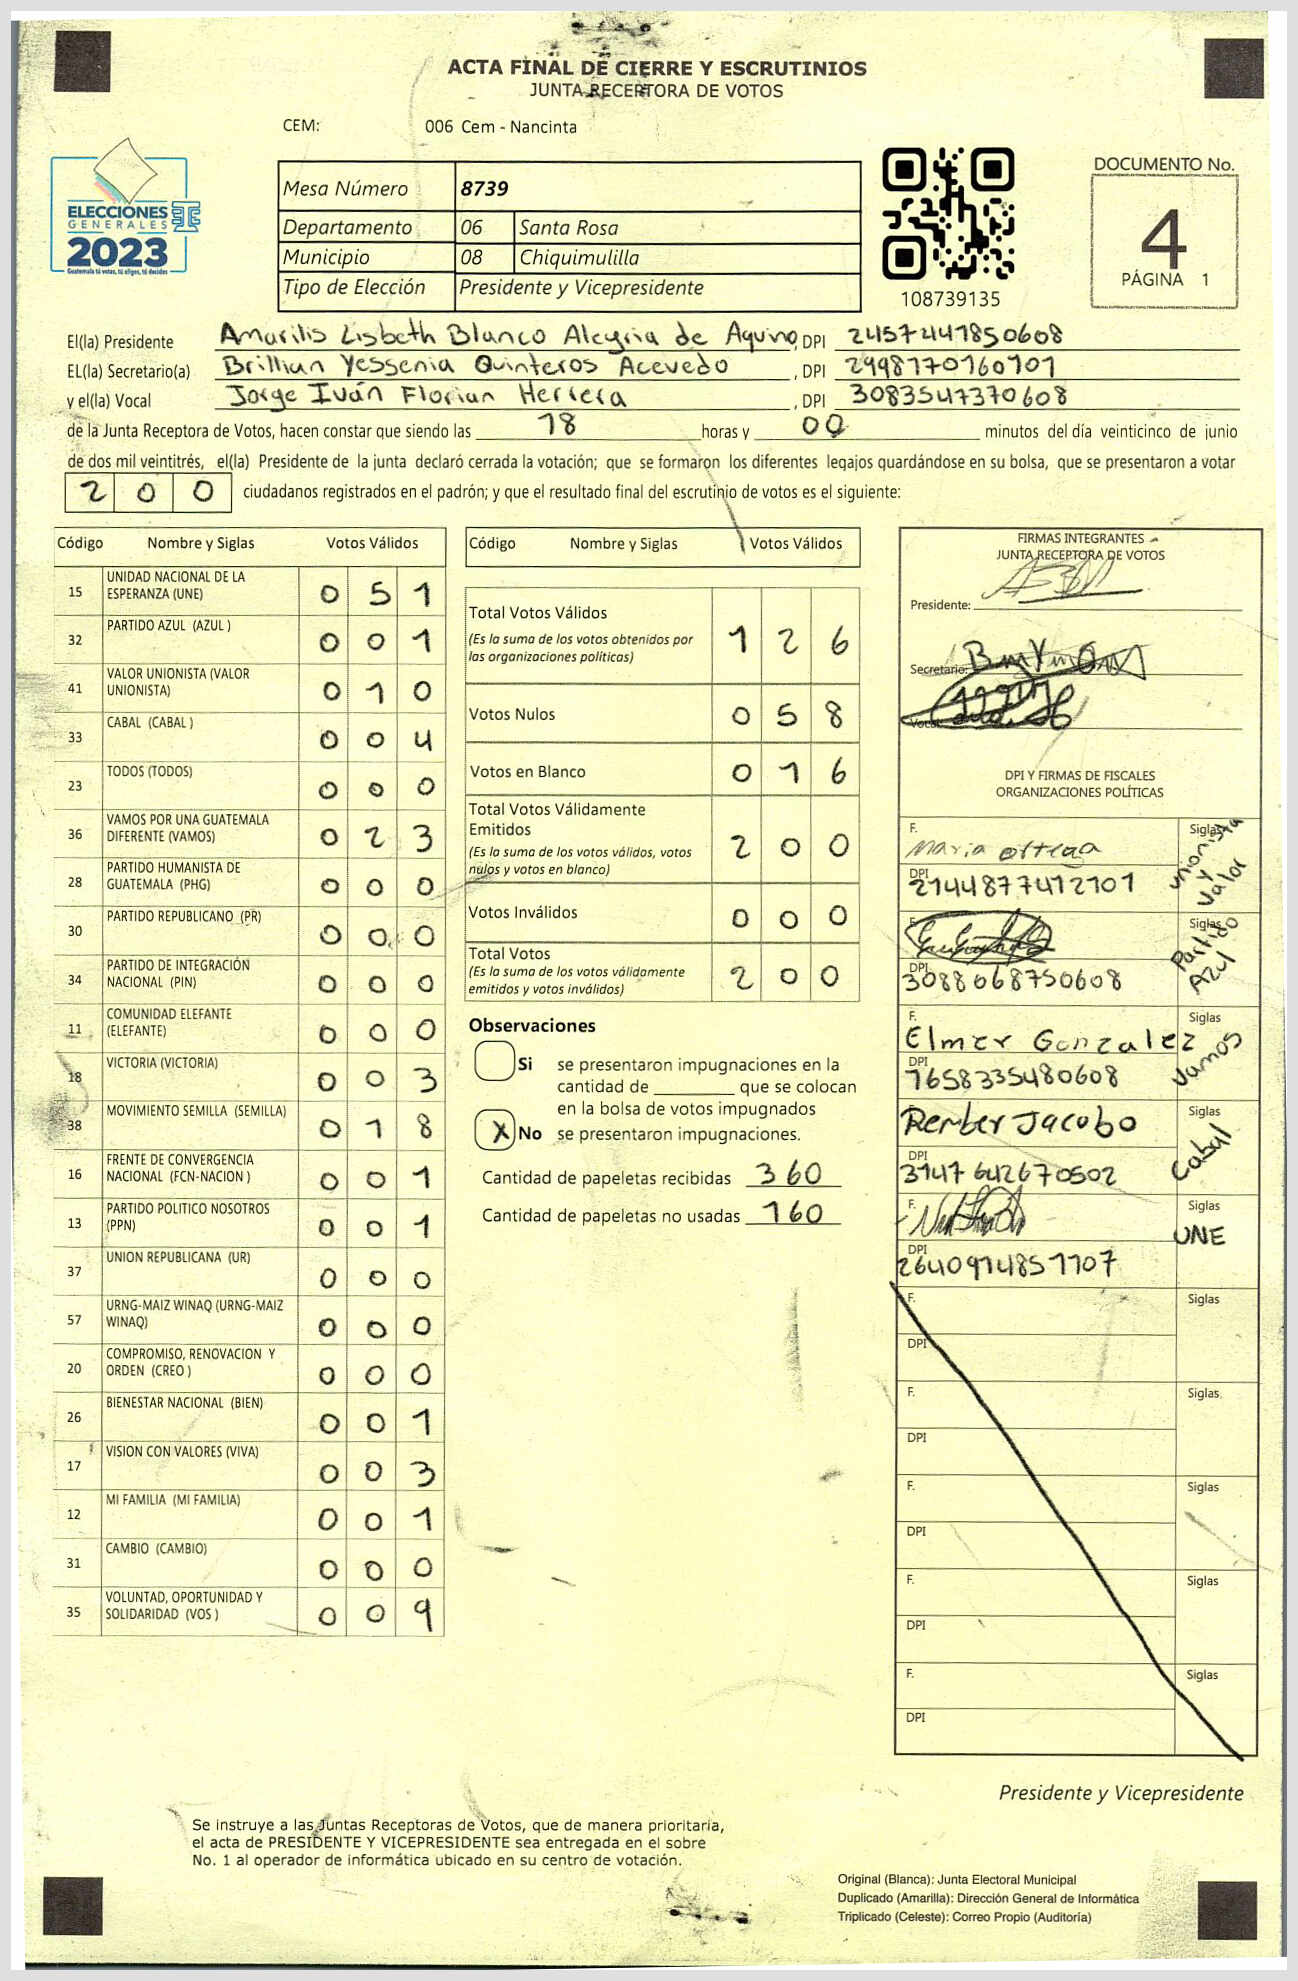 ACTA FINAL DE CIERRE Y ESCRUTINIOS
JUNTA RECEPTORA DE VOTOS
CEM: 006 Cem - Nancinta
ELECCIONES
GENERALES
2023
Guatemala tú votas, tú eliges, tú decides
Mesa Número 8739
Departamento 06 Santa Rosa
Municipio 08 Chiquimulilla
Tipo de Elección Presidente y Vicepresidente
108739135
DOCUMENTO No.
4
PÁGINA 1
El(la) Presidente Amarilis Lisbeth Blanco Alegria de Aquino, DPI 2457447850608
EL(la) Secretario(a) Brillian Yessenia Quinteros Acevedo , DPI 2998770160101
y el(la) Vocal Jorge Iván Florian Herrera , DPI 3083547370608
de la Junta Receptora de Votos, hacen constar que siendo las 18 horas y 00 minutos del día veinticinco de junio
de dos mil veintitrés, el(la) Presidente de la junta declaró cerrada la votación; que se formaron los diferentes legajos quardándose en su bolsa, que se presentaron a votar
200 ciudadanos registrados en el padrón; y que el resultado final del escrutinio de votos es el siguiente:
Código Nombre y Siglas Votos Válidos
15 UNIDAD NACIONAL DE LA ESPERANZA (UNE) 0 5 1
32 PARTIDO AZUL (AZUL ) 0 0 1
41 VALOR UNIONISTA (VALOR UNIONISTA) 0 1 0
33 CABAL (CABAL ) 0 0 4
23 TODOS (TODOS) 0 0 0
36 VAMOS POR UNA GUATEMALA DIFERENTE (VAMOS) 0 2 3
28 PARTIDO HUMANISTA DE GUATEMALA (PHG) 0 0 0
30 PARTIDO REPUBLICANO (PR) 0 0 0
34 PARTIDO DE INTEGRACIÓN NACIONAL (PIN) 0 0 0
11 COMUNIDAD ELEFANTE (ELEFANTE) 0 0 0
18 VICTORIA (VICTORIA) 0 0 3
38 MOVIMIENTO SEMILLA (SEMILLA) 0 1 8
16 FRENTE DE CONVERGENCIA NACIONAL (FCN-NACION ) 0 0 1
13 PARTIDO POLITICO NOSOTROS (PPN) 0 0 1
37 UNION REPUBLICANA (UR) 0 0 0
57 URNG-MAIZ WINAQ (URNG-MAIZ WINAQ) 0 0 0
20 COMPROMISO, RENOVACION Y ORDEN (CREO ) 0 0 0
26 BIENESTAR NACIONAL (BIEN) 0 0 1
17 VISION CON VALORES (VIVA) 0 0 3
12 MI FAMILIA (MI FAMILIA) 0 0 1
31 CAMBIO (CAMBIO) 0 0 0
35 VOLUNTAD, OPORTUNIDAD Y SOLIDARIDAD (VOS ) 0 0 9
Código Nombre y Siglas Votos Válidos
Total Votos Válidos 1 2 6
(Es la suma de los votos obtenidos por
las organizaciones políticas)
Votos Nulos 0 5 8
Votos en Blanco 0 1 6
Total Votos Válidamente
Emitidos 2 0 0
(Es la suma de los votos válidos, votos
nulos y votos en blanco)
Votos Inválidos 0 0 0
Total Votos 2 0 0
(Es la suma de los votos válidamente
emitidos y votos inválidos)
Observaciones
Si se presentaron impugnaciones en la
cantidad de ________ que se colocan
en la bolsa de votos impugnados
X No se presentaron impugnaciones.
Cantidad de papeletas recibidas 360
Cantidad de papeletas no usadas 160
FIRMAS INTEGRANTES
JUNTA RECEPTORA DE VOTOS
Presidente:
Secretario:
Vocal:
DPI Y FIRMAS DE FISCALES
ORGANIZACIONES POLÍTICAS
F. Maria Ortega Siglas Unionista y Valor
DPI 2144877412101
F. Siglas Partido Azul
DPI 3088068750608
F. Elmer Gonzalez Siglas Vamos
DPI 1658335480608
Rember Jacobo Siglas Cabal
DPI 3147642670502
F. Siglas UNE
DPI 2640914851107
F. Siglas
DPI
F. Siglas
DPI
F. Siglas
DPI
F. Siglas
DPI
F. Siglas
DPI
Presidente y Vicepresidente
Se instruye a las Juntas Receptoras de Votos, que de manera prioritaria,
el acta de PRESIDENTE Y VICEPRESIDENTE sea entregada en el sobre
No. 1 al operador de informática ubicado en su centro de votación.
Original (Blanca): Junta Electoral Municipal
Duplicado (Amarilla): Dirección General de Informática
Triplicado (Celeste): Correo Propio (Auditoría)